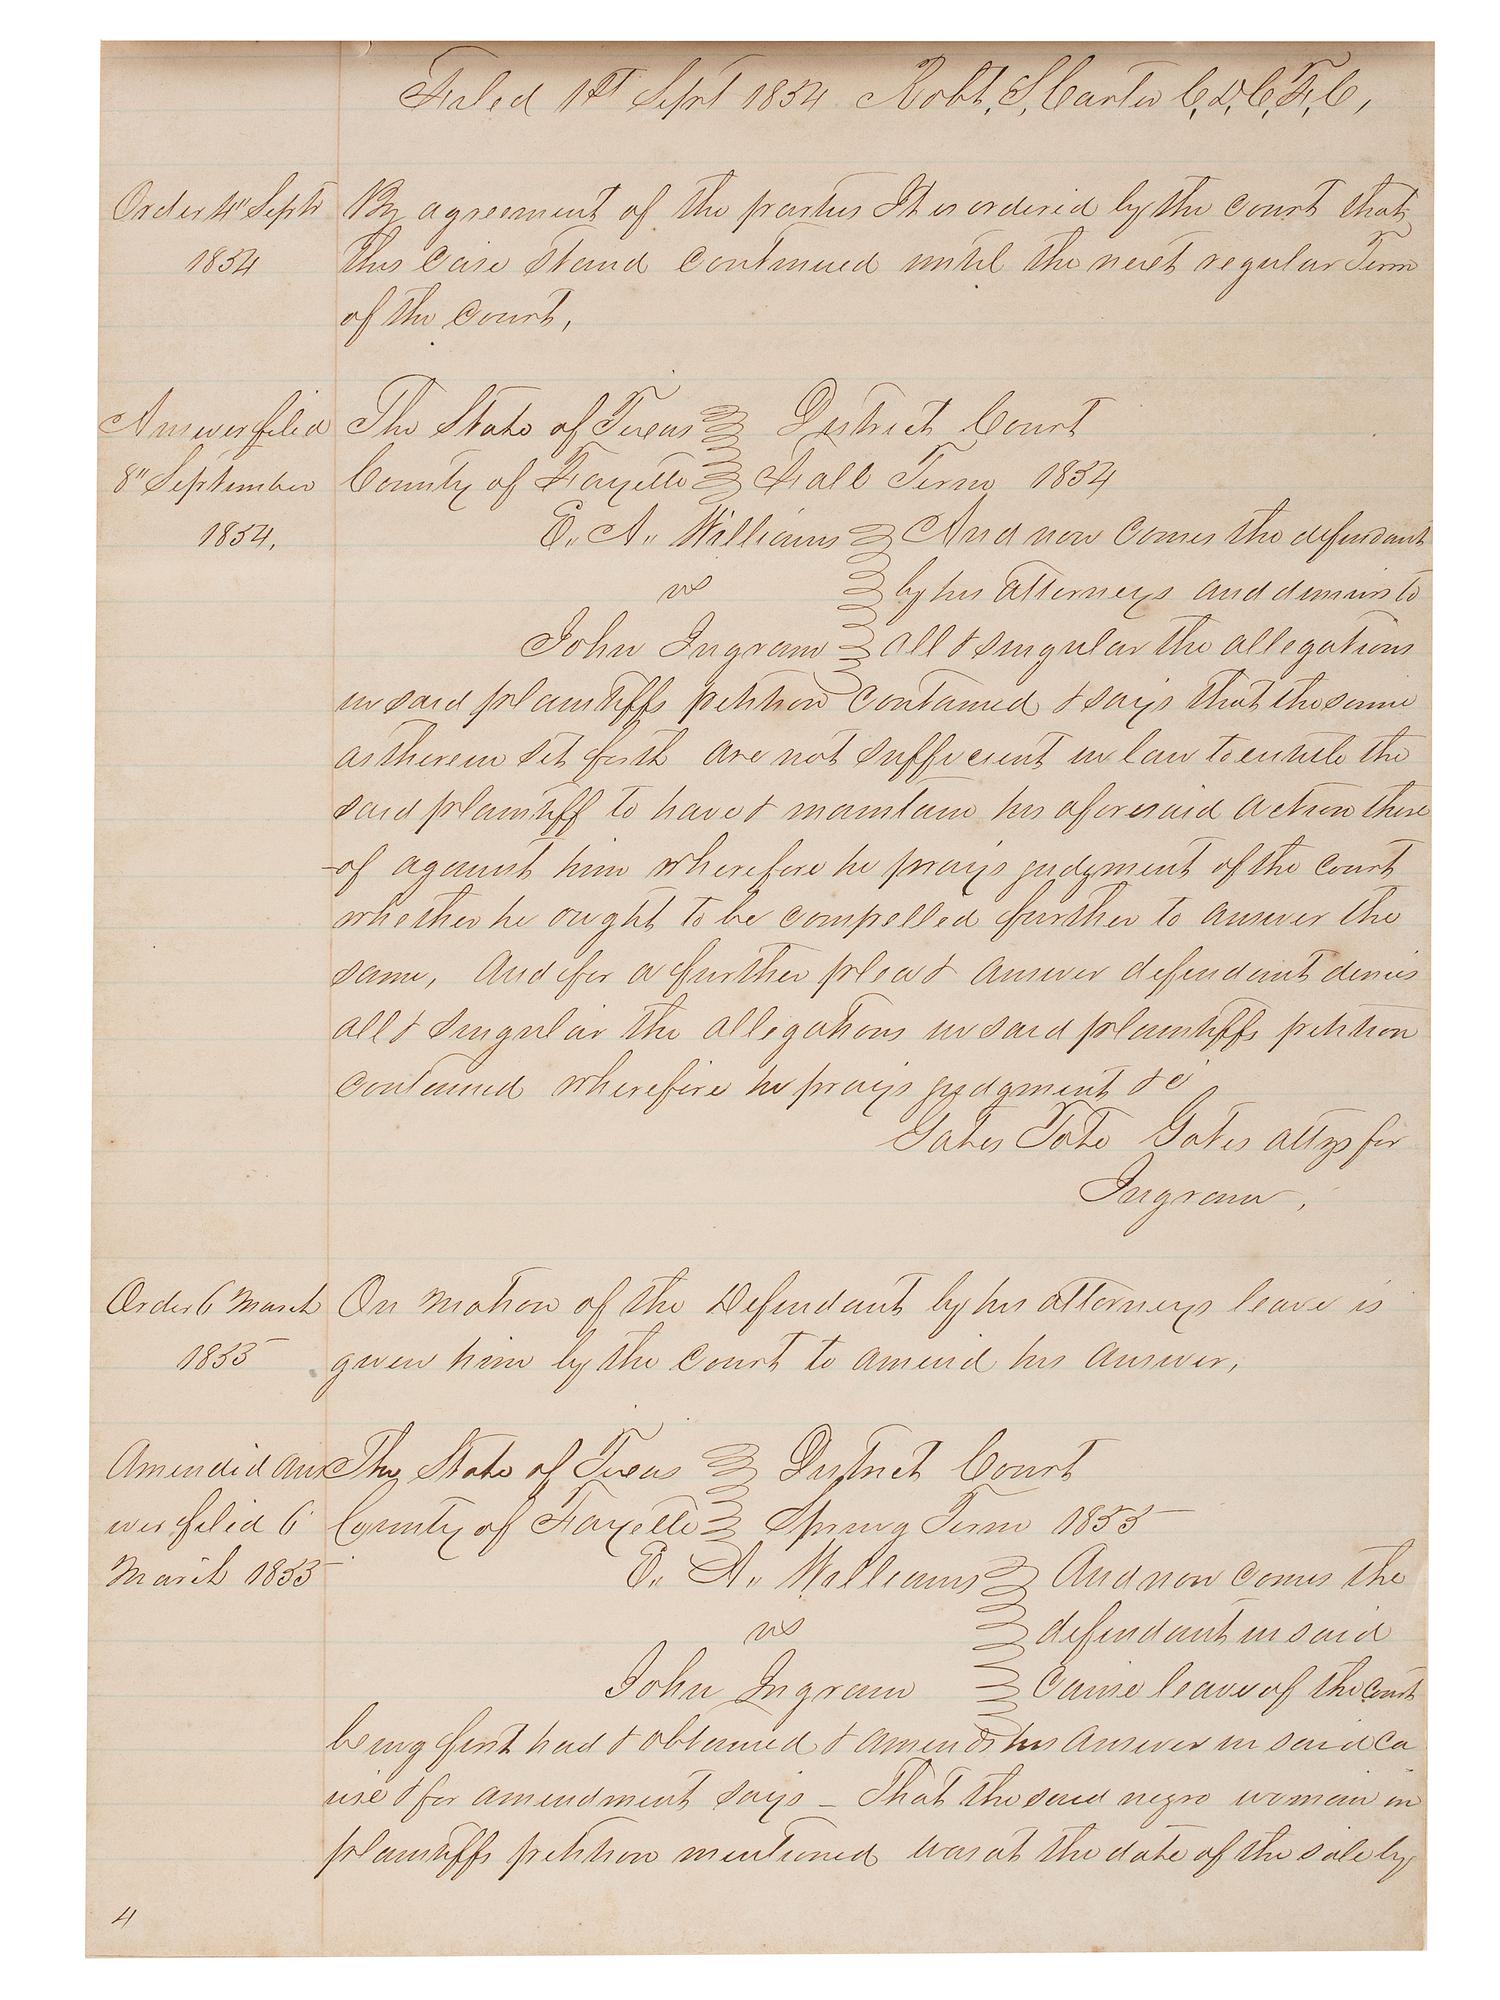 Filed 1st Sept 1854 Robt, S, Carter C, D, C, F, C,
Order 4" Sept
1854
By agreement of the parties It is ordered by the court that
this case stand continued until the next regular Term
of the court,
Answer filed
8" September
1854,
The State of Texas District Court
County of Fayette Fall Term 1854
E,, A,, Williams And now comes the defendant
vs by his attorneys and demurs to
John Ingram all & singular the allegations
in said plaintiffs petition contained & says that the same
as therein set forth are not sufficient in law to entitle the
said plaintiff to have & maintain his aforesaid action there
-of against him wherefore he prays judgment of the court
whether he ought to be compelled further to answer the
same, And for a further plea & answer defendant denies
all & singular the allegations in said plaintiffs petition
contained wherefore he prays judgment &c
Gates Tate Gates attys for
Ingram,
Order 6 March
1855
On motion of the Defendant by his attorneys leave is
given him by the court to amend his answer,
Amended ans
wer filed 6
March 1855
The State of Texas District Court
County of Fayette Spring Term 1855
E,, A,, Williams And now comes the
vs defendant in said
John Ingram cause leave of the court
being first had & obtained & amends his answer in said ca
use & for amendment says - That the said negro woman in
plaintiffs petition mentioned was at the date of the sale by
4